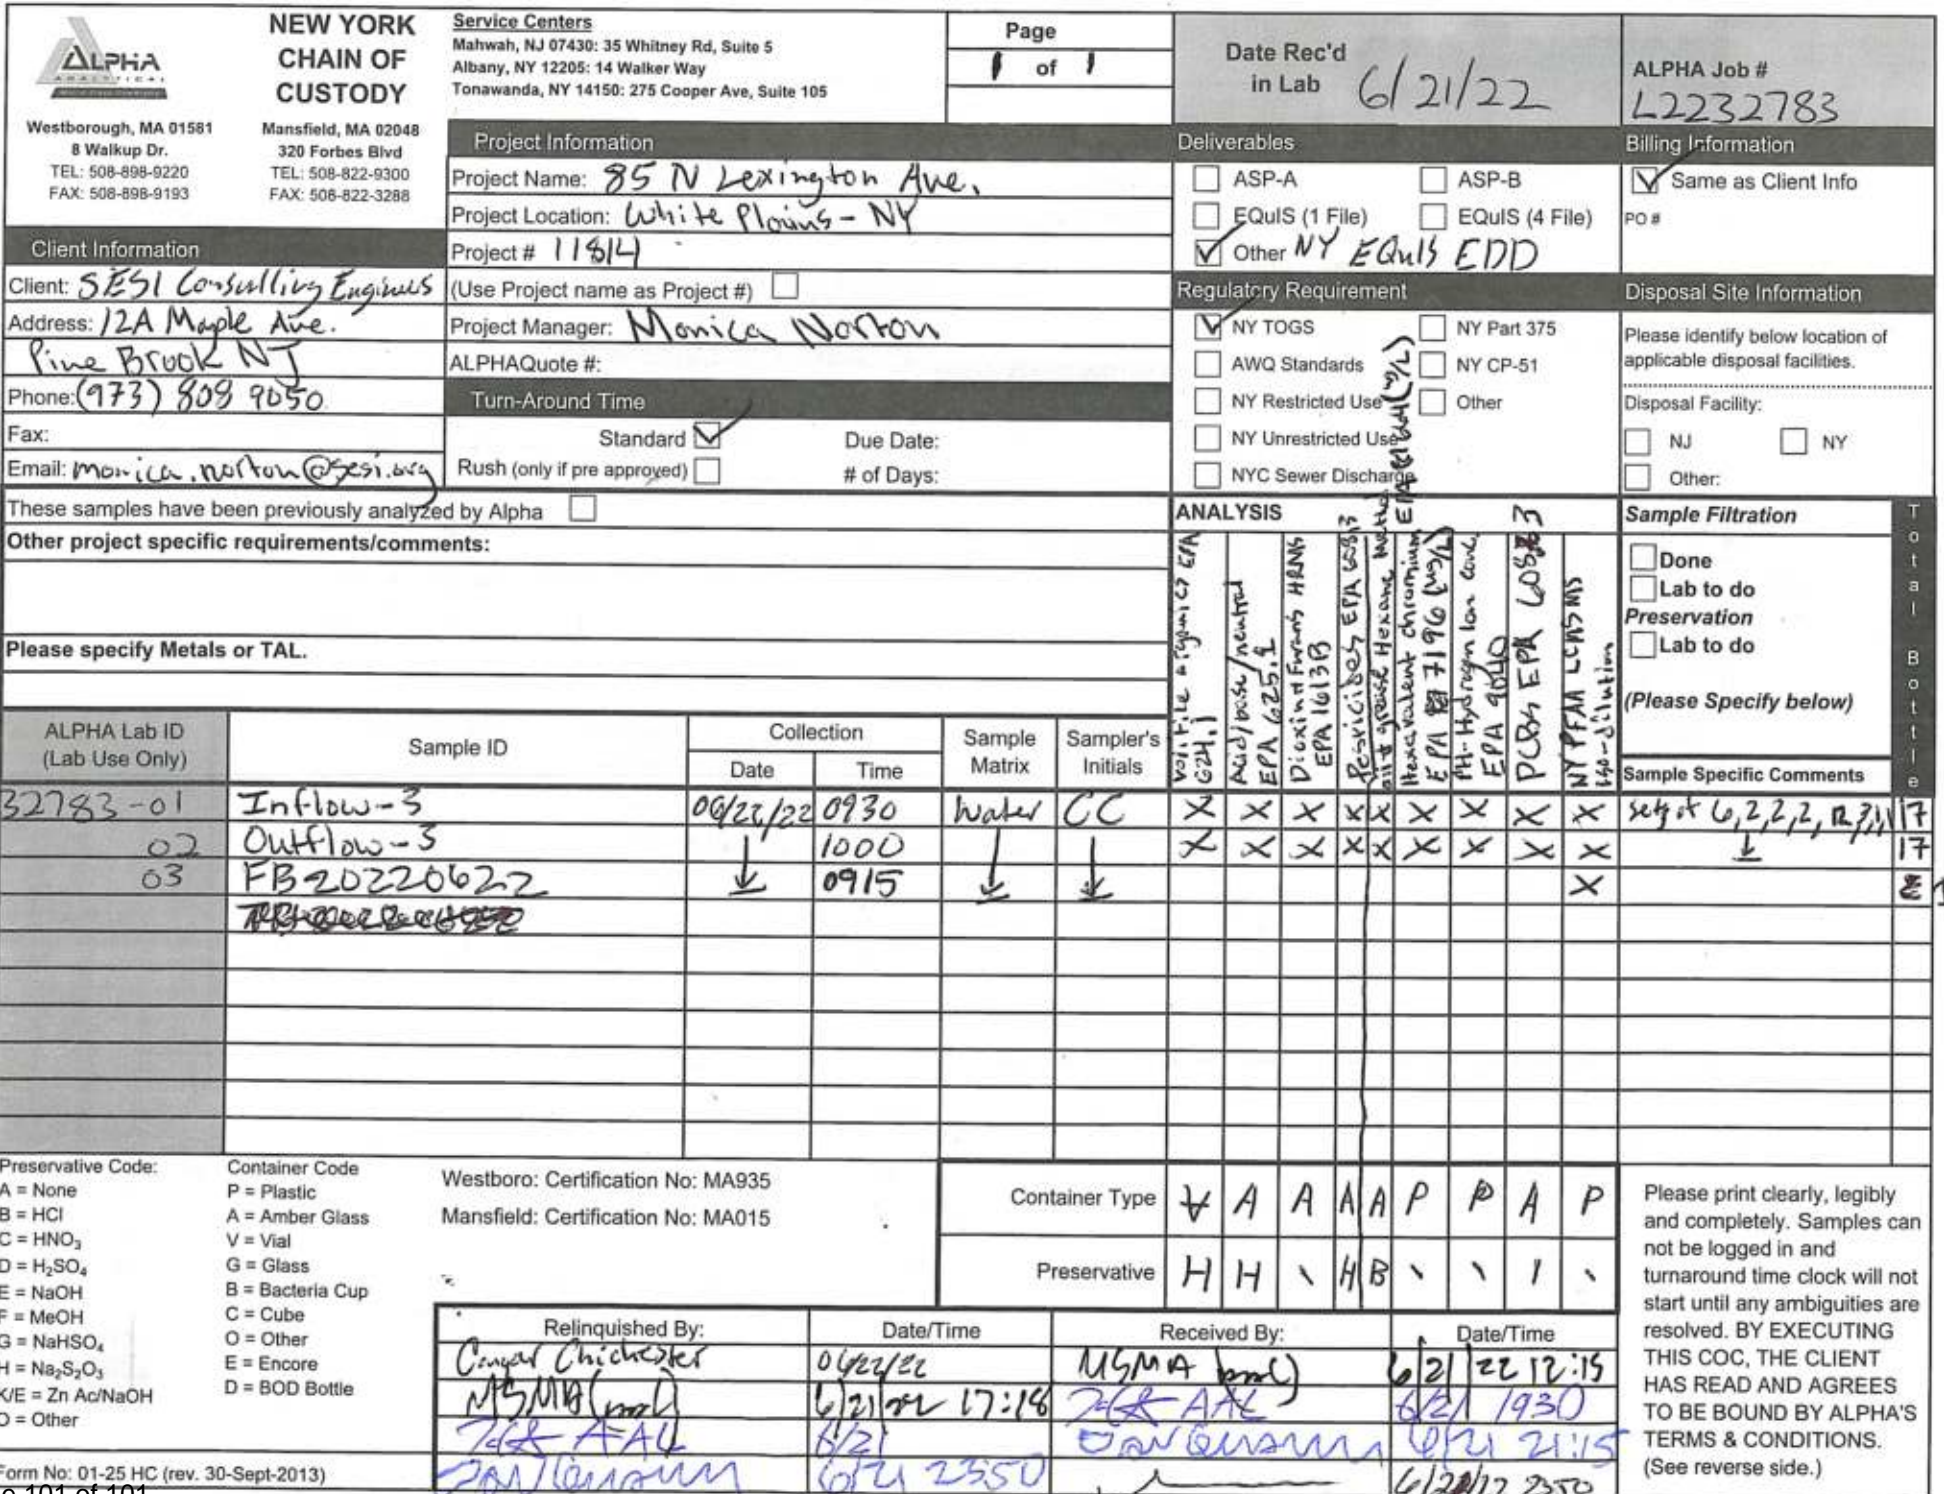 ALPHA
ANALYTICAL
Westborough, MA 01581
8 Walkup Dr.
TEL: 508-898-9220
FAX: 508-898-9193
NEW YORK
CHAIN OF
CUSTODY
Mansfield, MA 02048
320 Forbes Blvd
TEL: 508-822-9300
FAX: 508-822-3288
Service Centers
Mahwah, NJ 07430: 35 Whitney Rd, Suite 5
Albany, NY 12205: 14 Walker Way
Tonawanda, NY 14150: 275 Cooper Ave, Suite 105
Page
1 of 1
Date Rec'd
in Lab 6/21/22
ALPHA Job #
L2232783
Client Information
Client: SESI Consulting Engineers
Address: 12A Maple Ave.
Pine Brook NJ
Phone: (973) 808 9050
Fax:
Email: monica.norton@sesi.org
Project Information
Project Name: 85 N Lexington Ave.
Project Location: White Plains - NY
Project # 11814
(Use Project name as Project #)
Project Manager: Monica Norton
ALPHAQuote #:
Turn-Around Time
Standard Due Date:
Rush (only if pre approved) # of Days:
Deliverables
ASP-A ASP-B
EQuIS (1 File) EQuIS (4 File)
Other NY EQuIS EDD
Regulatory Requirement
NY TOGS NY Part 375
AWQ Standards NY CP-51
NY Restricted Use Other
NY Unrestricted Use
NYC Sewer Discharge
Billing Information
Same as Client Info
PO #
Disposal Site Information
Please identify below location of
applicable disposal facilities.
Disposal Facility:
NJ NY
Other:
These samples have been previously analyzed by Alpha
Other project specific requirements/comments:
Please specify Metals or TAL.
ANALYSIS
Volatile organics EPA
624.1
Acid/base/neutral
EPA 625.1
Dioxin Furans HRMS
EPA 1613B
Pesticides EPA 608.3
oil & grease Hexane Method EPA 1664 (mg/L)
Hexavalent chromium
EPA 7196 (mg/L)
PH-Hydrogen Ion conc.
EPA 9040
PCBs EPA 608.3
NY PFAA LCMSMS
Iso-Dilution
Sample Filtration
Done
Lab to do
Preservation
Lab to do
(Please Specify below)
Total Bottle
ALPHA Lab ID
(Lab Use Only)
Sample ID
Collection
Date Time
Sample
Matrix
Sampler's
Initials
Sample Specific Comments
32783-01 Inflow-3 06/22/22 0930 Water CC X X X X X X X X X 17
02 Outflow-3 1000 X X X X X X X X X 17
03 FB20220622 0915 X
Preservative Code:
A = None
B = HCl
C = HNO3
D = H2SO4
E = NaOH
F = MeOH
G = NaHSO4
H = Na2S2O3
K/E = Zn Ac/NaOH
O = Other
Container Code
P = Plastic
A = Amber Glass
V = Vial
G = Glass
B = Bacteria Cup
C = Cube
O = Other
E = Encore
D = BOD Bottle
Westboro: Certification No: MA935
Mansfield: Certification No: MA015
Container Type V A A A A P P A P
Preservative H H \ H B \ \ / \
Relinquished By: Date/Time Received By: Date/Time
Conyar Chichester 06/22/22 MSMA 6/21/22 12:15
MSMA 6/21/22 17:18 AAL 6/21 1930
AAL 6/21 6/21 21:15
6/21 2350 2350
Please print clearly, legibly
and completely. Samples can
not be logged in and
turnaround time clock will not
start until any ambiguities are
resolved. BY EXECUTING
THIS COC, THE CLIENT
HAS READ AND AGREES
TO BE BOUND BY ALPHA'S
TERMS & CONDITIONS.
(See reverse side.)
Form No: 01-25 HC (rev. 30-Sept-2013)
101 of 101